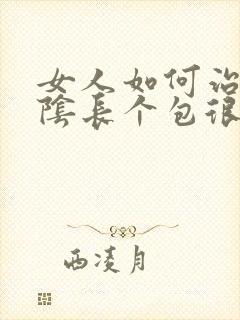 女人如何治
陰長个包很
西凌月